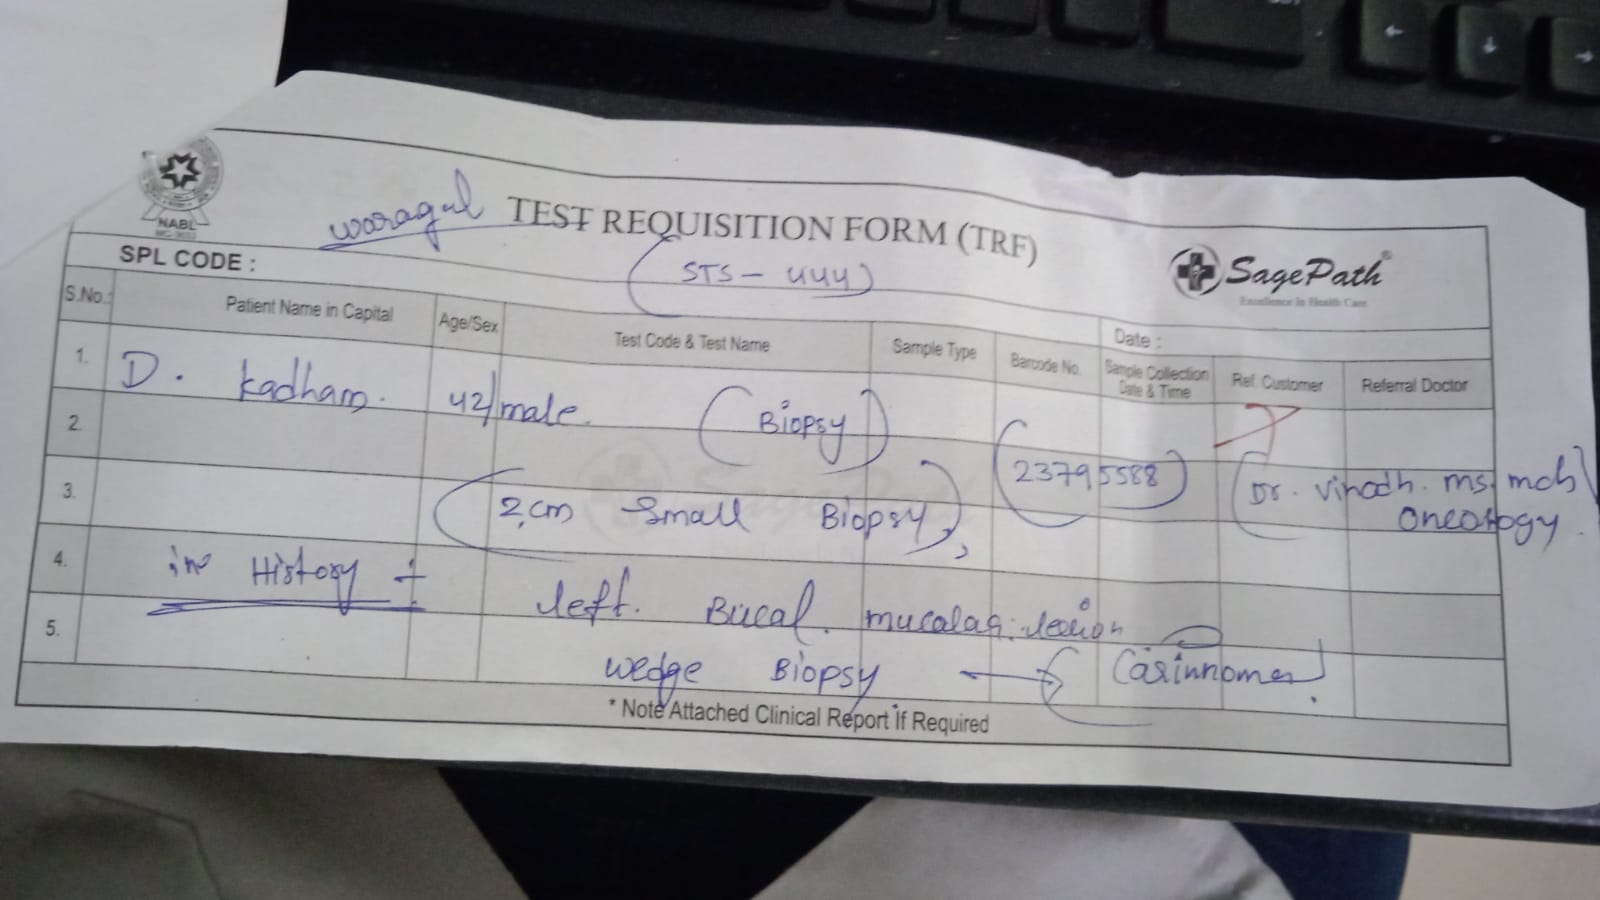 NABL
waragul TEST REQUISITION FORM (TRF)
SagePath®
Excellence In Health Care
SPL CODE :
(STS - 444)
Date :
S.No.: Patient Name in Capital Age/Sex Test Code & Test Name Sample Type Barcode No. Sample Collection Date & Time Ref. Customer Referral Doctor
1. D. kadham. 42/male. (Biopsy)
2. (23795588) (Dr. Vinodh. ms. mch
oncology.
3. (2cm Small Biopsy),
4. in History : left. Bucal. mucalaq: lesion
5. wedge Biopsy → (Carinnoma).
* Note Attached Clinical Report if Required